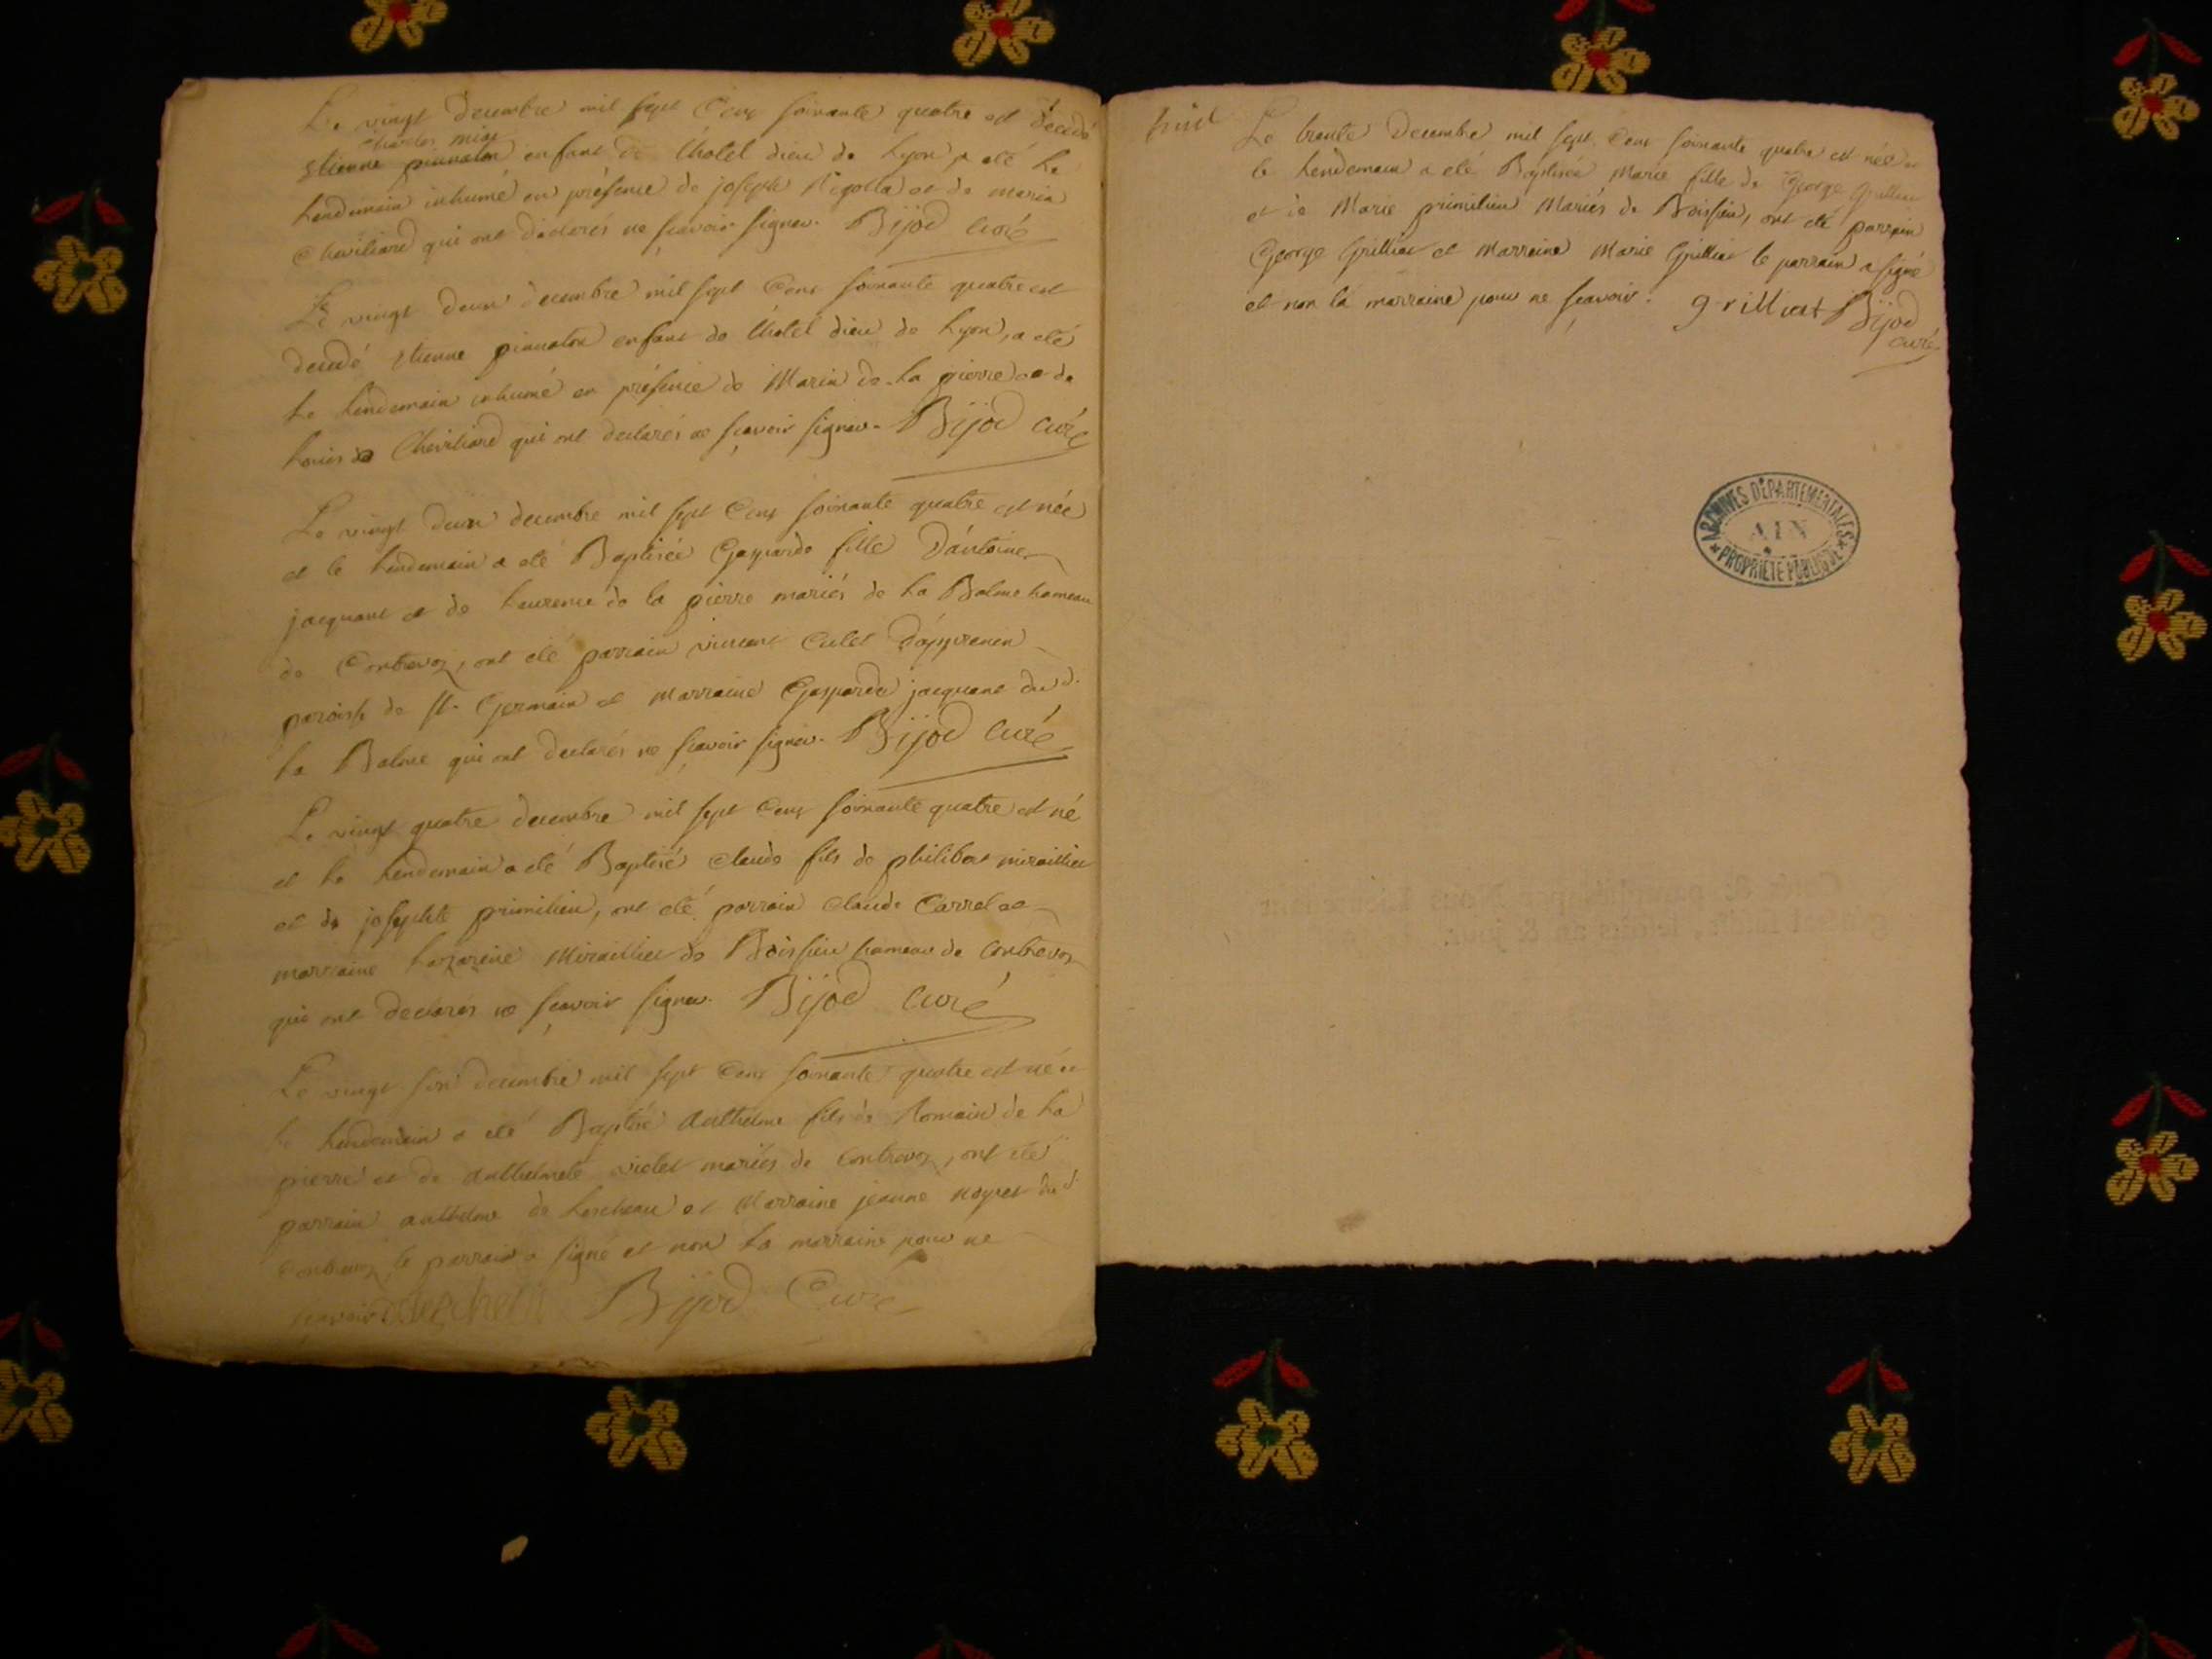 Le vingt decembre mil sept Cens soixante quatre est decedé
Charles mise
Etienne pinnaton enfant de l'hotel dieu de Lyon, a eté le
lendemain inhumé en présence de joseph et de Marin
Cheviliard qui ont déclarés ne sçavoir signer. Bijod Curé
Le vingt deux decembre mil sept Cens soixante quatre est
decedé Etienne pinnaton enfant de l'hotel dieu de Lyon, a eté
le lendemain inhumé en présence de Marin de la pierre et de
Cheviliard qui ont declarés ne sçavoir signer. Bijod Curé
Le vingt deux decembre mil sept Cens soixante quatre est née
et le lendemain a eté Baptisée Gasparde fille D'antoine
jacquant et de Laurence de la pierre mariés de la Balme hameau
de Contrevoz, ont eté parrain vincent Culet D'apprenin
paroisse de st. Germain et Marraine Gasparde jacquant du d.
la Balme qui ont declarés ne sçavoir signer. Bijod Curé
Le vingt quatre decembre mil sept Cens soixante quatre est né
et le lendemain a eté Baptisé Claude fils de philibert miraillier
et de josephte primilieu, ont eté parrain Claude Carrel et
marraine Lazarene Miraillier de Boissieu hameau de Contrevoz
qui ont declarés ne sçavoir signer. Bijod Curé
Le vingt six decembre mil sept Cens soixante quatre est né et
le lendemain a eté Baptisé Anthelme fils de Romain de la
pierre et de Anthelmete violet mariés de Contrevoz, ont eté
parrain anthelme de Lescheau et Marraine jeanne du d.
Contrevoz, le parrain a signé et non la marraine pour ne
sçavoir Bijod Curé
huit
Le trante Decembre mil sept Cens soixante quatre est née et
le lendemain a eté Baptisée Marie fille de George Grilliat
et de Marie primilieu Mariés de Boissieu, ont eté parrain
George Grilliat et Marraine Marie Grilliat le parrain a signé
et non la marraine pour ne sçavoir. grilliat Bijod
curé
ARCHIVES DÉPARTEMENTALES
AIN
PROPRIÉTÉ PUBLIQUE